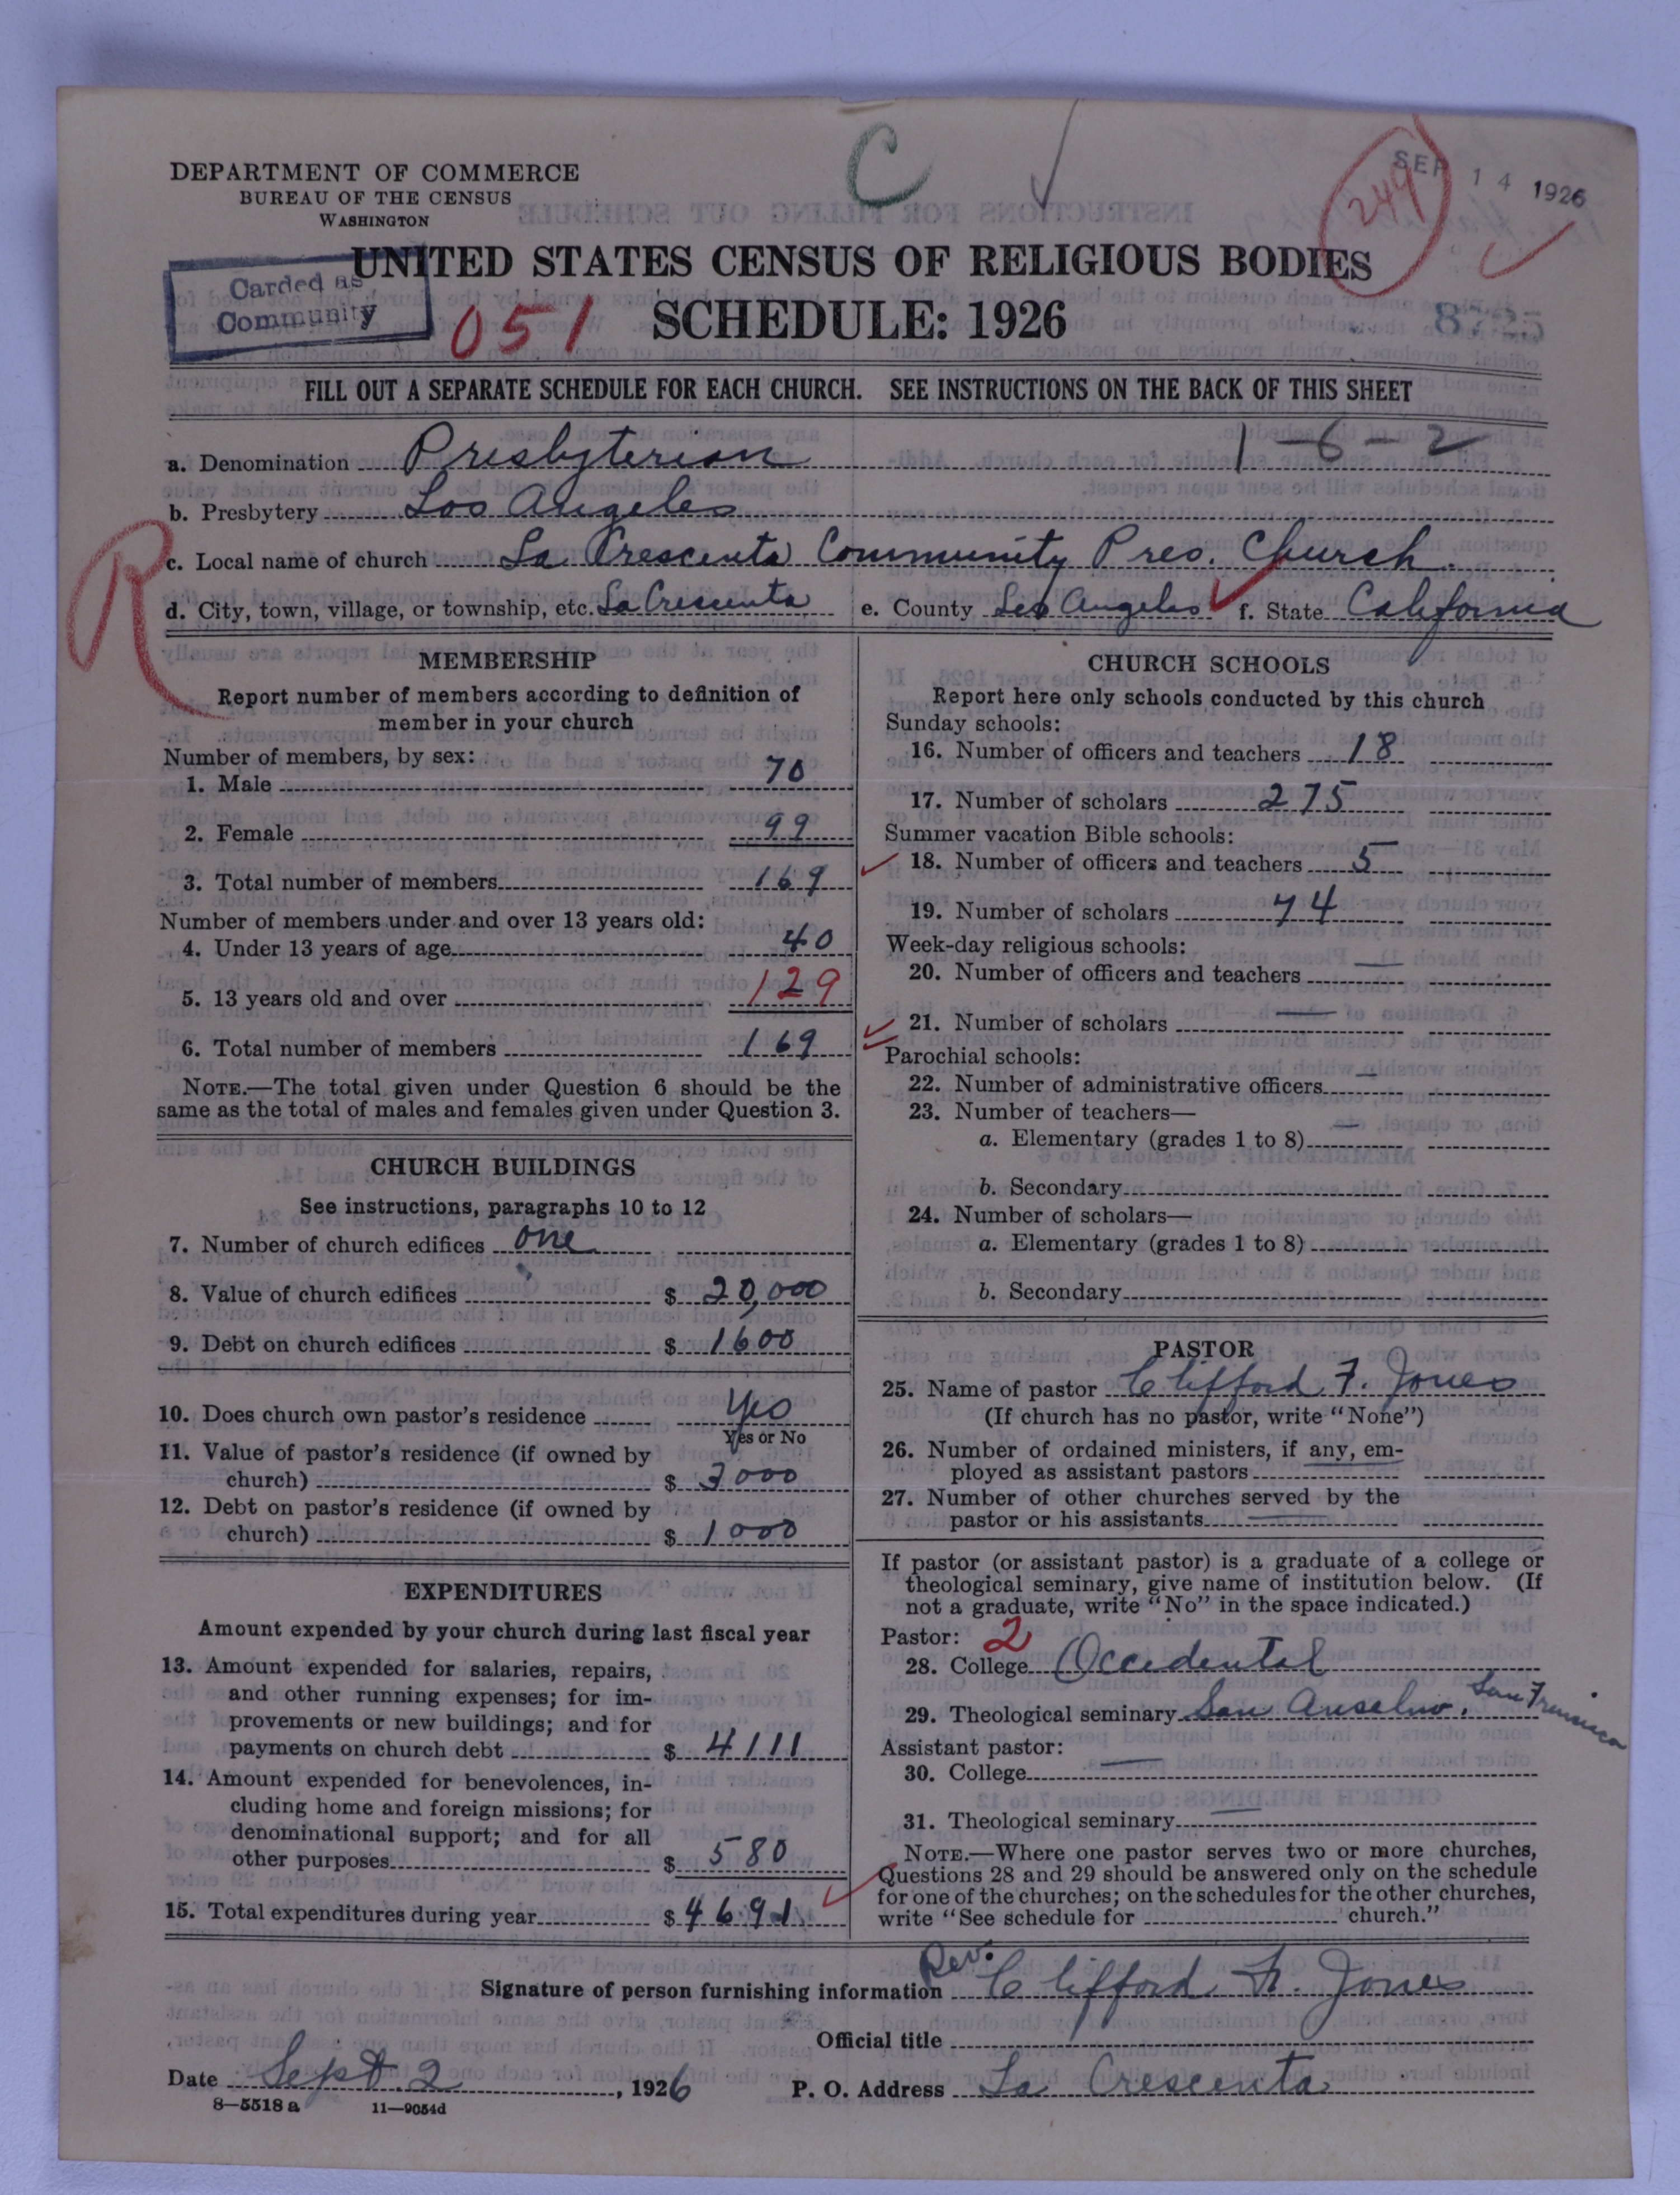 C
SEP 14 1926
249
DEPARTMENT OF COMMERCE
BUREAU OF THE CENSUS
WASHINGTON
UNITED STATES CENSUS OF RELIGIOUS BODIES
Carded as
Community
051
SCHEDULE: 1926
8725
FILL OUT A SEPARATE SCHEDULE FOR EACH CHURCH. SEE INSTRUCTIONS ON THE BACK OF THIS SHEET
1-6-2
a. Denomination Presbyterian
b. Presbytery Los Angeles
R
c. Local name of church La Crescenta Community Pres. Church.
d. City, town, village, or township, etc. La Crescenta e. County Los Angeles f. State California
MEMBERSHIP
Report number of members according to definition of
member in your church
Number of members, by sex:
1. Male 70
2. Female 99
3. Total number of members 169
Number of members under and over 13 years old:
4. Under 13 years of age 40
5. 13 years old and over 129
6. Total number of members 169
NOTE.—The total given under Question 6 should be the
same as the total of males and females given under Question 3.
CHURCH BUILDINGS
See instructions, paragraphs 10 to 12
7. Number of church edifices one
8. Value of church edifices $ 20,000
9. Debt on church edifices $ 1600
10. Does church own pastor's residence Yes
Yes or No
11. Value of pastor's residence (if owned by
church) $ 3000
12. Debt on pastor's residence (if owned by
church) $ 1000
EXPENDITURES
Amount expended by your church during last fiscal year
13. Amount expended for salaries, repairs,
and other running expenses; for im-
provements or new buildings; and for
payments on church debt $ 4111
14. Amount expended for benevolences, in-
cluding home and foreign missions; for
denominational support; and for all
other purposes $ 580
15. Total expenditures during year $ 4691
CHURCH SCHOOLS
Report here only schools conducted by this church
Sunday schools:
16. Number of officers and teachers 18
17. Number of scholars 275
Summer vacation Bible schools:
18. Number of officers and teachers 5
19. Number of scholars 74
Week-day religious schools:
20. Number of officers and teachers —
21. Number of scholars —
Parochial schools:
22. Number of administrative officers —
23. Number of teachers—
a. Elementary (grades 1 to 8) —
b. Secondary
24. Number of scholars—
a. Elementary (grades 1 to 8)
b. Secondary
PASTOR
25. Name of pastor Clifford F. Jones
(If church has no pastor, write "None")
26. Number of ordained ministers, if any, em-
ployed as assistant pastors —
27. Number of other churches served by the
pastor or his assistants —
If pastor (or assistant pastor) is a graduate of a college or
theological seminary, give name of institution below. (If
not a graduate, write "No" in the space indicated.)
Pastor: 2
28. College Occidental
29. Theological seminary San Anselmo, San Francisco
Assistant pastor:
30. College —
31. Theological seminary —
NOTE.—Where one pastor serves two or more churches,
Questions 28 and 29 should be answered only on the schedule
for one of the churches; on the schedules for the other churches,
write "See schedule for church."
Signature of person furnishing information Rev. Clifford F. Jones
Official title
Date Sept. 2, 1926 P. O. Address La Crescenta
8—5518 a 11—9054d